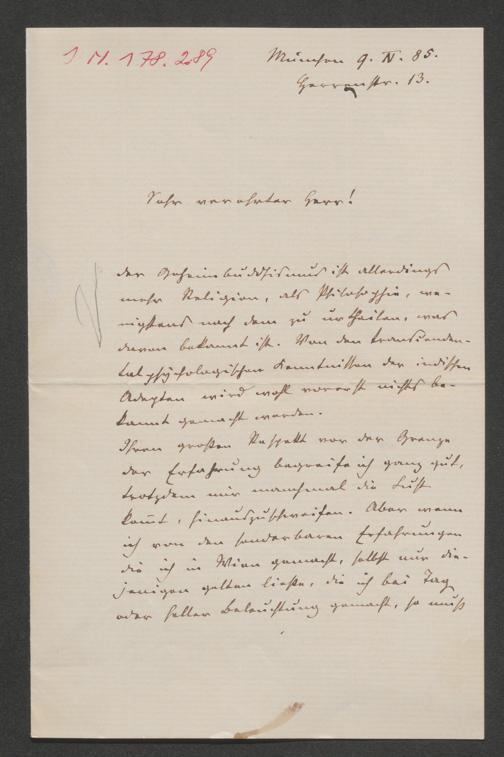 1 N. 178.289
München 9. IV. 85.
Herrenstr. 13.
Sehr verehrter Herr!
der Geheimbuddhismus ist allerdings
mehr Religion, als Philosophie, we-
nigstens nach dem zu urtheilen, was
davon bekannt ist. Von den transcenden-
talpsychologischen Kenntnissen der indischen
Adepten wird wohl vorerst nichts be-
kannt gemacht werden.
Ihren großen Respekt vor der Grenze
der Erfahrung begreife ich ganz gut,
trotzdem mir manchmal die Lust
kom̅t, hinauszuschweifen. Aber wenn
ich von den sonderbaren Erfahrungen
die ich in Wien gemacht, selbst nur die-
jenigen gelten ließe, die ich bei Tag
oder heller Beleuchtung gemacht, so muß